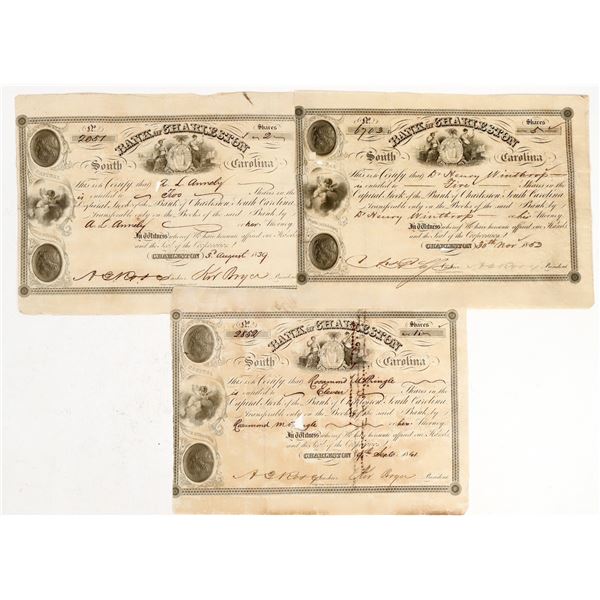 No. Shares
2051 2
BANK OF CHARLESTON
South Carolina
This is to Certify that A L Annely
is entitled to two Shares in the
Capital Stock of the Bank of Charleston, South Carolina
Transferable only on the Books of the said Bank by
A L Annely or her Attorney
In Witness whereof We have hereunto affixed our Names
and the Seal of the Corporation
CHARLESTON 5 August 1839
Cashier President
No. Shares
6703 5
BANK OF CHARLESTON
South Carolina
This is to Certify that Dr Henry Winthrop
is entitled to Five Shares in the
Capital Stock of the Bank of Charleston, South Carolina
Transferable only on the Books of the said Bank by
Dr Henry Winthrop or his Attorney
In Witness whereof We have hereunto affixed our Names
and the Seal of the Corporation
CHARLESTON 30th Nov 1853
President
No. Shares
2852 11
BANK OF CHARLESTON
CAPITAL
South Carolina
This is to Certify that Rosamond Pringle
is entitled to Eleven Shares in the
Capital Stock of the Bank of Charleston, South Carolina
Transferable only on the Books of the said Bank by
Rosamond or her Attorney
In Witness whereof We have hereunto affixed our Names
and the Seal of the Corporation
CHARLESTON Sept 1841
Cashier President